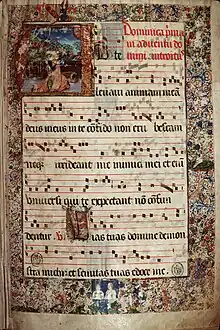 Dominica prima
in adventu do
mini introitus
te levavi animam mea
deus meus in te cōfido non erubescam
neq irrideant me inimici mei et enī
universi qui te expectant nō confun
dentur Vias tuas domine demon
stra michi et semitas tuas edoce me